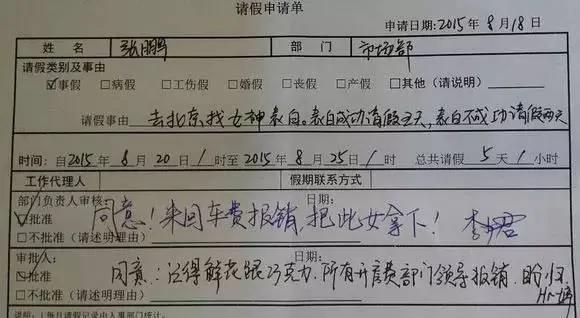 请假申请单
申请日期:2015年 8月18日
姓 名 张鹏 部 门 市场部
请假类别及事由
☑事假 □病假 □工伤假 □婚假 □丧假 □产假 □其他(请说明)
请假事由 去北京找女神表白。表白成功请假五天,表白不成功请假两天
时间:自2015年 8月 20日 1时至2015年 8月 25日 1时 总共请假 5天 1小时
工作代理人 假期联系方式
部门负责人审核: 日期:
☑批准 同意!来回车费报销,把此女拿下! 李君
□不批准(请述明理由)
审批人: 日期:
☑批准 同意:记得鲜花跟巧克力,所有开房费部门领导报销,盼归。
□不批准(请述明理由) Hr-
说明:1.每月请假记录由人事部门统计。